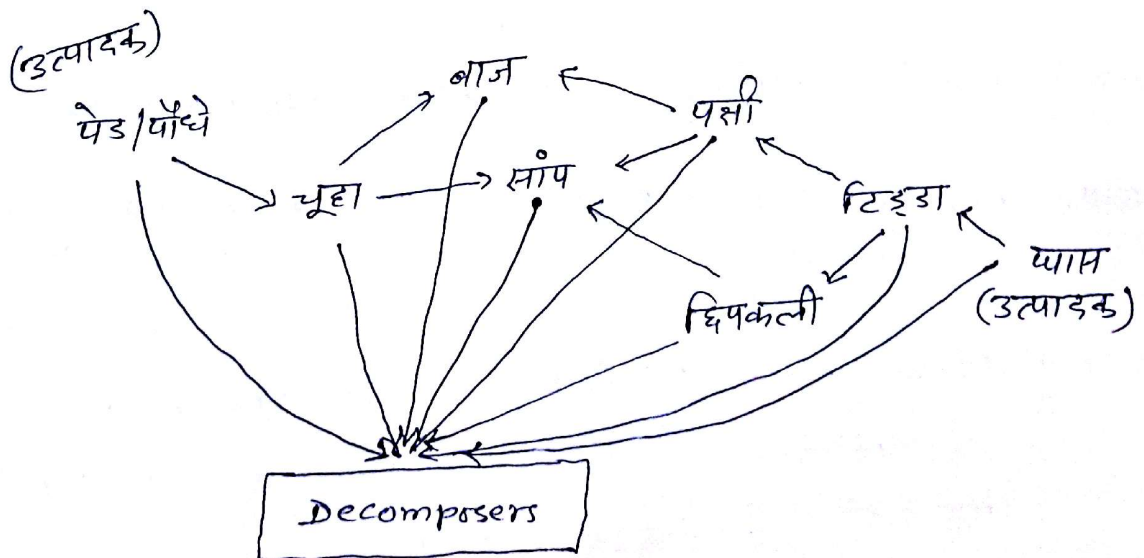 (उत्पादक)
पेड/पौधे
बाज
पक्षी
चूहा
सांप
टिड्डा
घास
(उत्पादक)
छिपकली
Decomposers